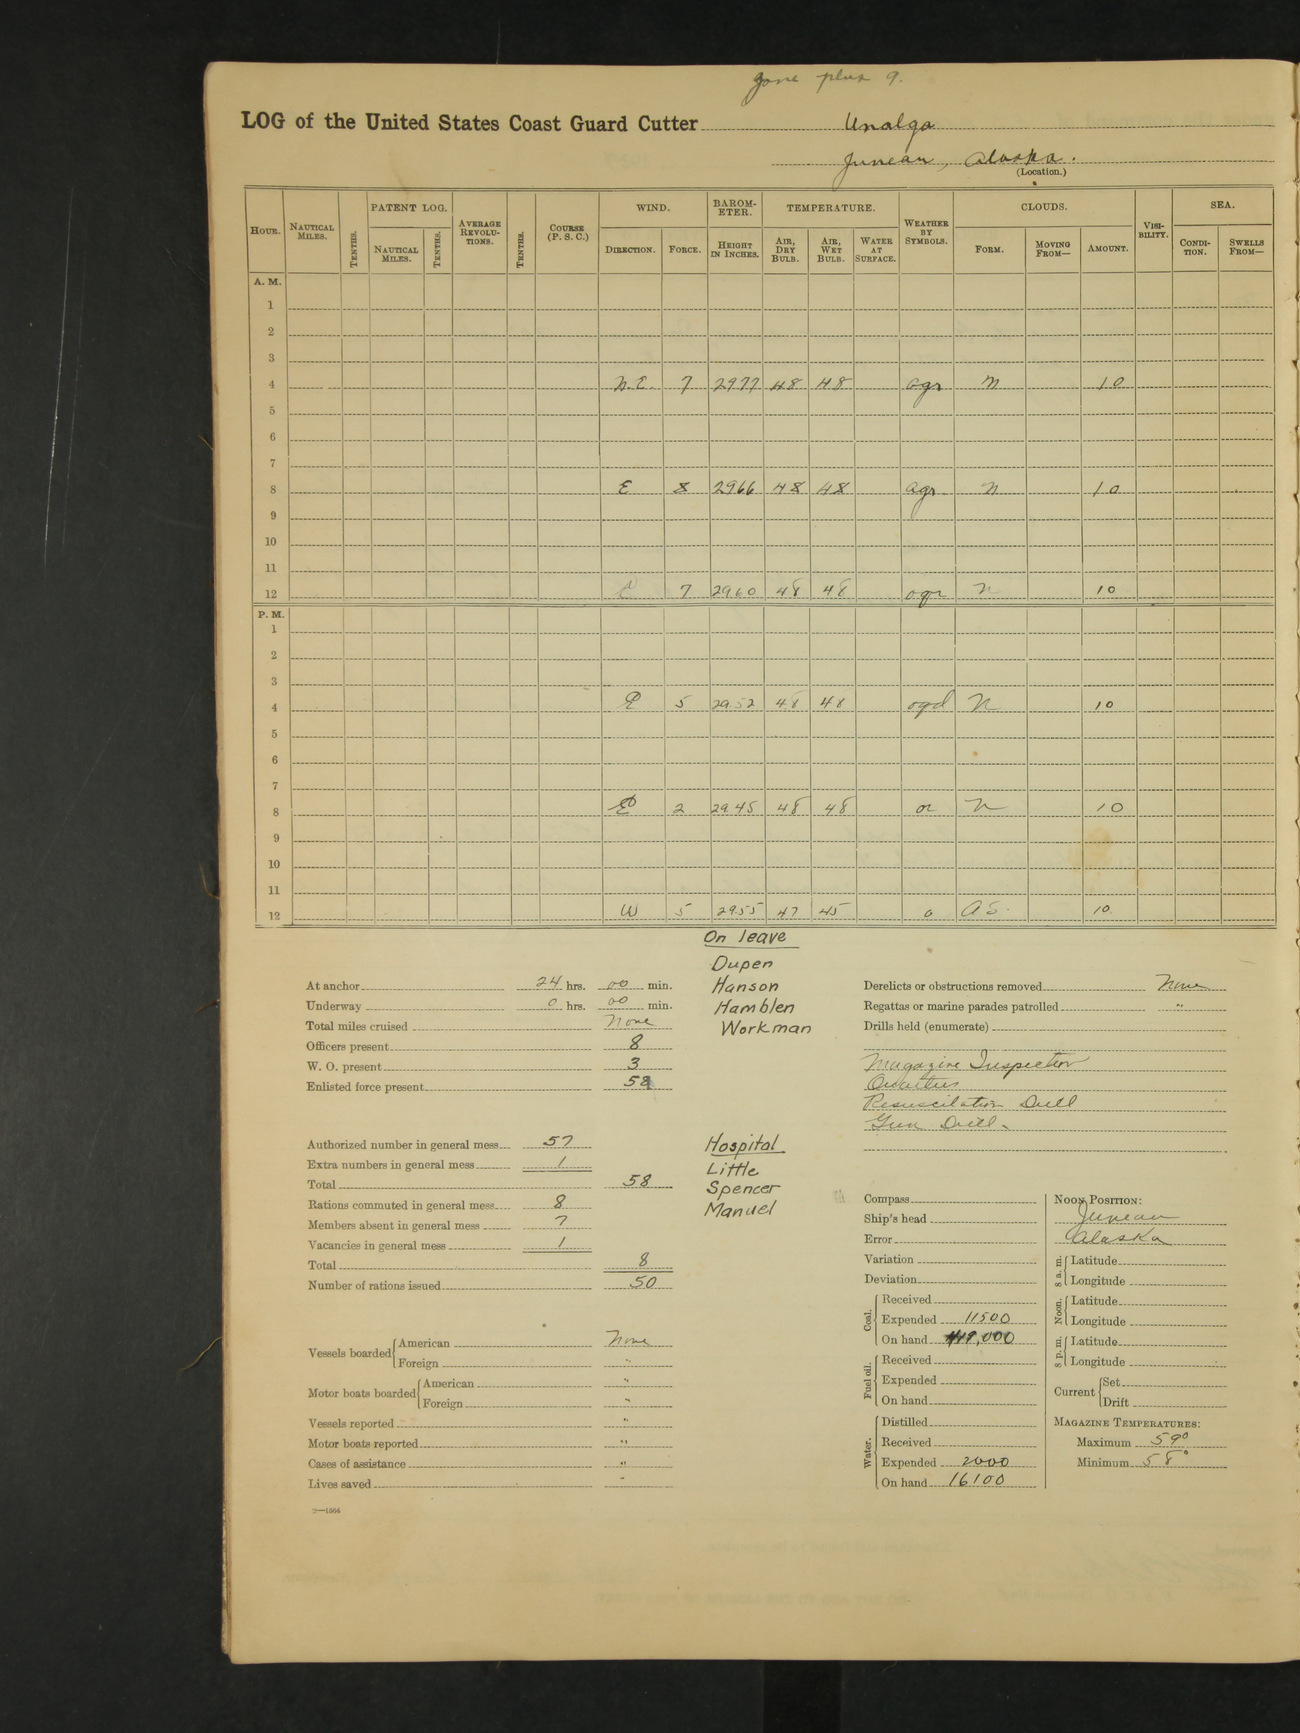 Zone plus 9.
LOG of the United States Coast Guard Cutter Unalga
Juneau, Alaska.
(Location.)
HOUR. NAUTICAL MILES. TENTHS. PATENT LOG. NAUTICAL MILES. TENTHS. AVERAGE REVOLU-TIONS. TENTHS. COURSE (P. S. C.) WIND. DIRECTION. FORCE. BAROM-ETER. HEIGHT IN INCHES. TEMPERATURE. AIR, DRY BULB. AIR, WET BULB. WATER AT SURFACE. WEATHER BY SYMBOLS. CLOUDS. FORM. MOVING FROM— AMOUNT. VISI-BILITY. SEA. CONDI-TION. SWELLS FROM—
A. M.
1
2
3
4 N.E. 7 2977 48 48 ogr N 10
5
6
7
8 E 8 2966 48 48 ogr N 10
9
10
11
12 E 7 2960 48 48 ogr N 10
P. M.
1
2
3
4 E 5 2952 48 48 ogd N 10
5
6
7
8 E 2 2945 48 48 or N 10
9
10
11
12 W 5 2955 47 45 o AS. 10
On leave
Dupen
Hanson
Hamblen
Workman
At anchor 24 hrs. 00 min.
Underway 0 hrs. 00 min.
Total miles cruised None
Officers present 8
W. O. present 3
Enlisted force present 52
Authorized number in general mess 57
Extra numbers in general mess 1
Total 58
Rations commuted in general mess 8
Members absent in general mess 7
Vacancies in general mess 1
Total 8
Number of rations issued 50
Hospital
Little
Spencer
Manuel
Vessels boarded American None
Foreign "
Motor boats boarded American "
Foreign "
Vessels reported "
Motor boats reported "
Cases of assistance "
Lives saved "
2—1564
Derelicts or obstructions removed None
Regattas or marine parades patrolled "
Drills held (enumerate)
Magazine Inspection
Quarters
Resuscitation Drill
Gun Drill.
Compass
Ship's head
Error
Variation
Deviation
Coal. Received
Expended 11500
On hand 419,000
Fuel oil. Received
Expended
On hand
Water. Distilled
Received
Expended 2000
On hand 16100
NOON POSITION:
Juneau
Alaska
8 a. m. Latitude
Longitude
Noon. Latitude
Longitude
8 p. m. Latitude
Longitude
Current Set
Drift
MAGAZINE TEMPERATURES:
Maximum 59°
Minimum 58°